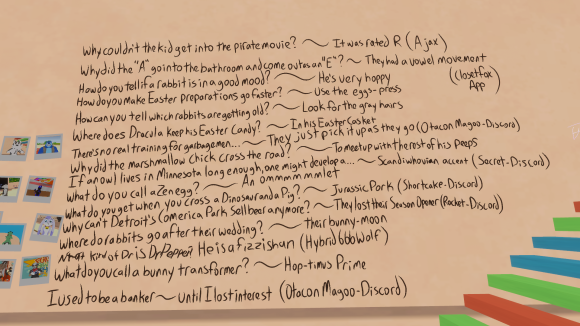 Why couldn't the kid get into the pirate movie? ~ It was rated R (Ajax)
Why did the "A" go into the bathroom and come out as an "E"? ~ They had a vowel movement
How do you tell if a rabbit is in a good mood? ~ He's very hoppy (Closetfox App)
How do you make Easter preparations go faster? ~ Use the eggs-press
How can you tell which rabbits are getting old? ~ Look for the gray hairs
Where does Dracula keep his Easter Candy? ~ In his Easter Casket
There's no real training for garbagemen... ~ They just pick it up as they go (Otacon Magoo-Discord)
Why did the marshmallow chick cross the road? ~ To meet up with the rest of his peeps
If an owl lives in Minnesota long enough, one might develop a... ~ Scandiwhovian accent (Sacret-Discord)
What do you call a Zen egg? ~ An ommmmmmlet
What do you get when you cross a Dinosaur and a Pig? ~ Jurassic Pork (Shortcake-Discord)
Why can't Detroit's Comerica Park sell beer anymore? ~ They lost their Season Opener (Rocket-Discord)
Where do rabbits go after their wedding? ~ Their bunny-moon
What kind of Dr is Dr Pepper He is a fizzishan (Hybrid666Wolf)
What do you call a bunny transformer? ~ Hop-timus Prime
I used to be a banker ~ until I lost interest (Otacon Magoo-Discord)